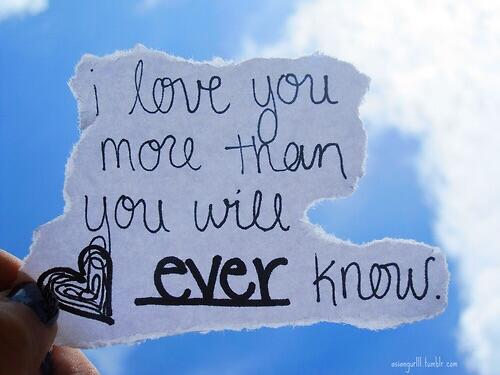 i love you
more than
you will
ever know.
asiangurlll.tumblr.com